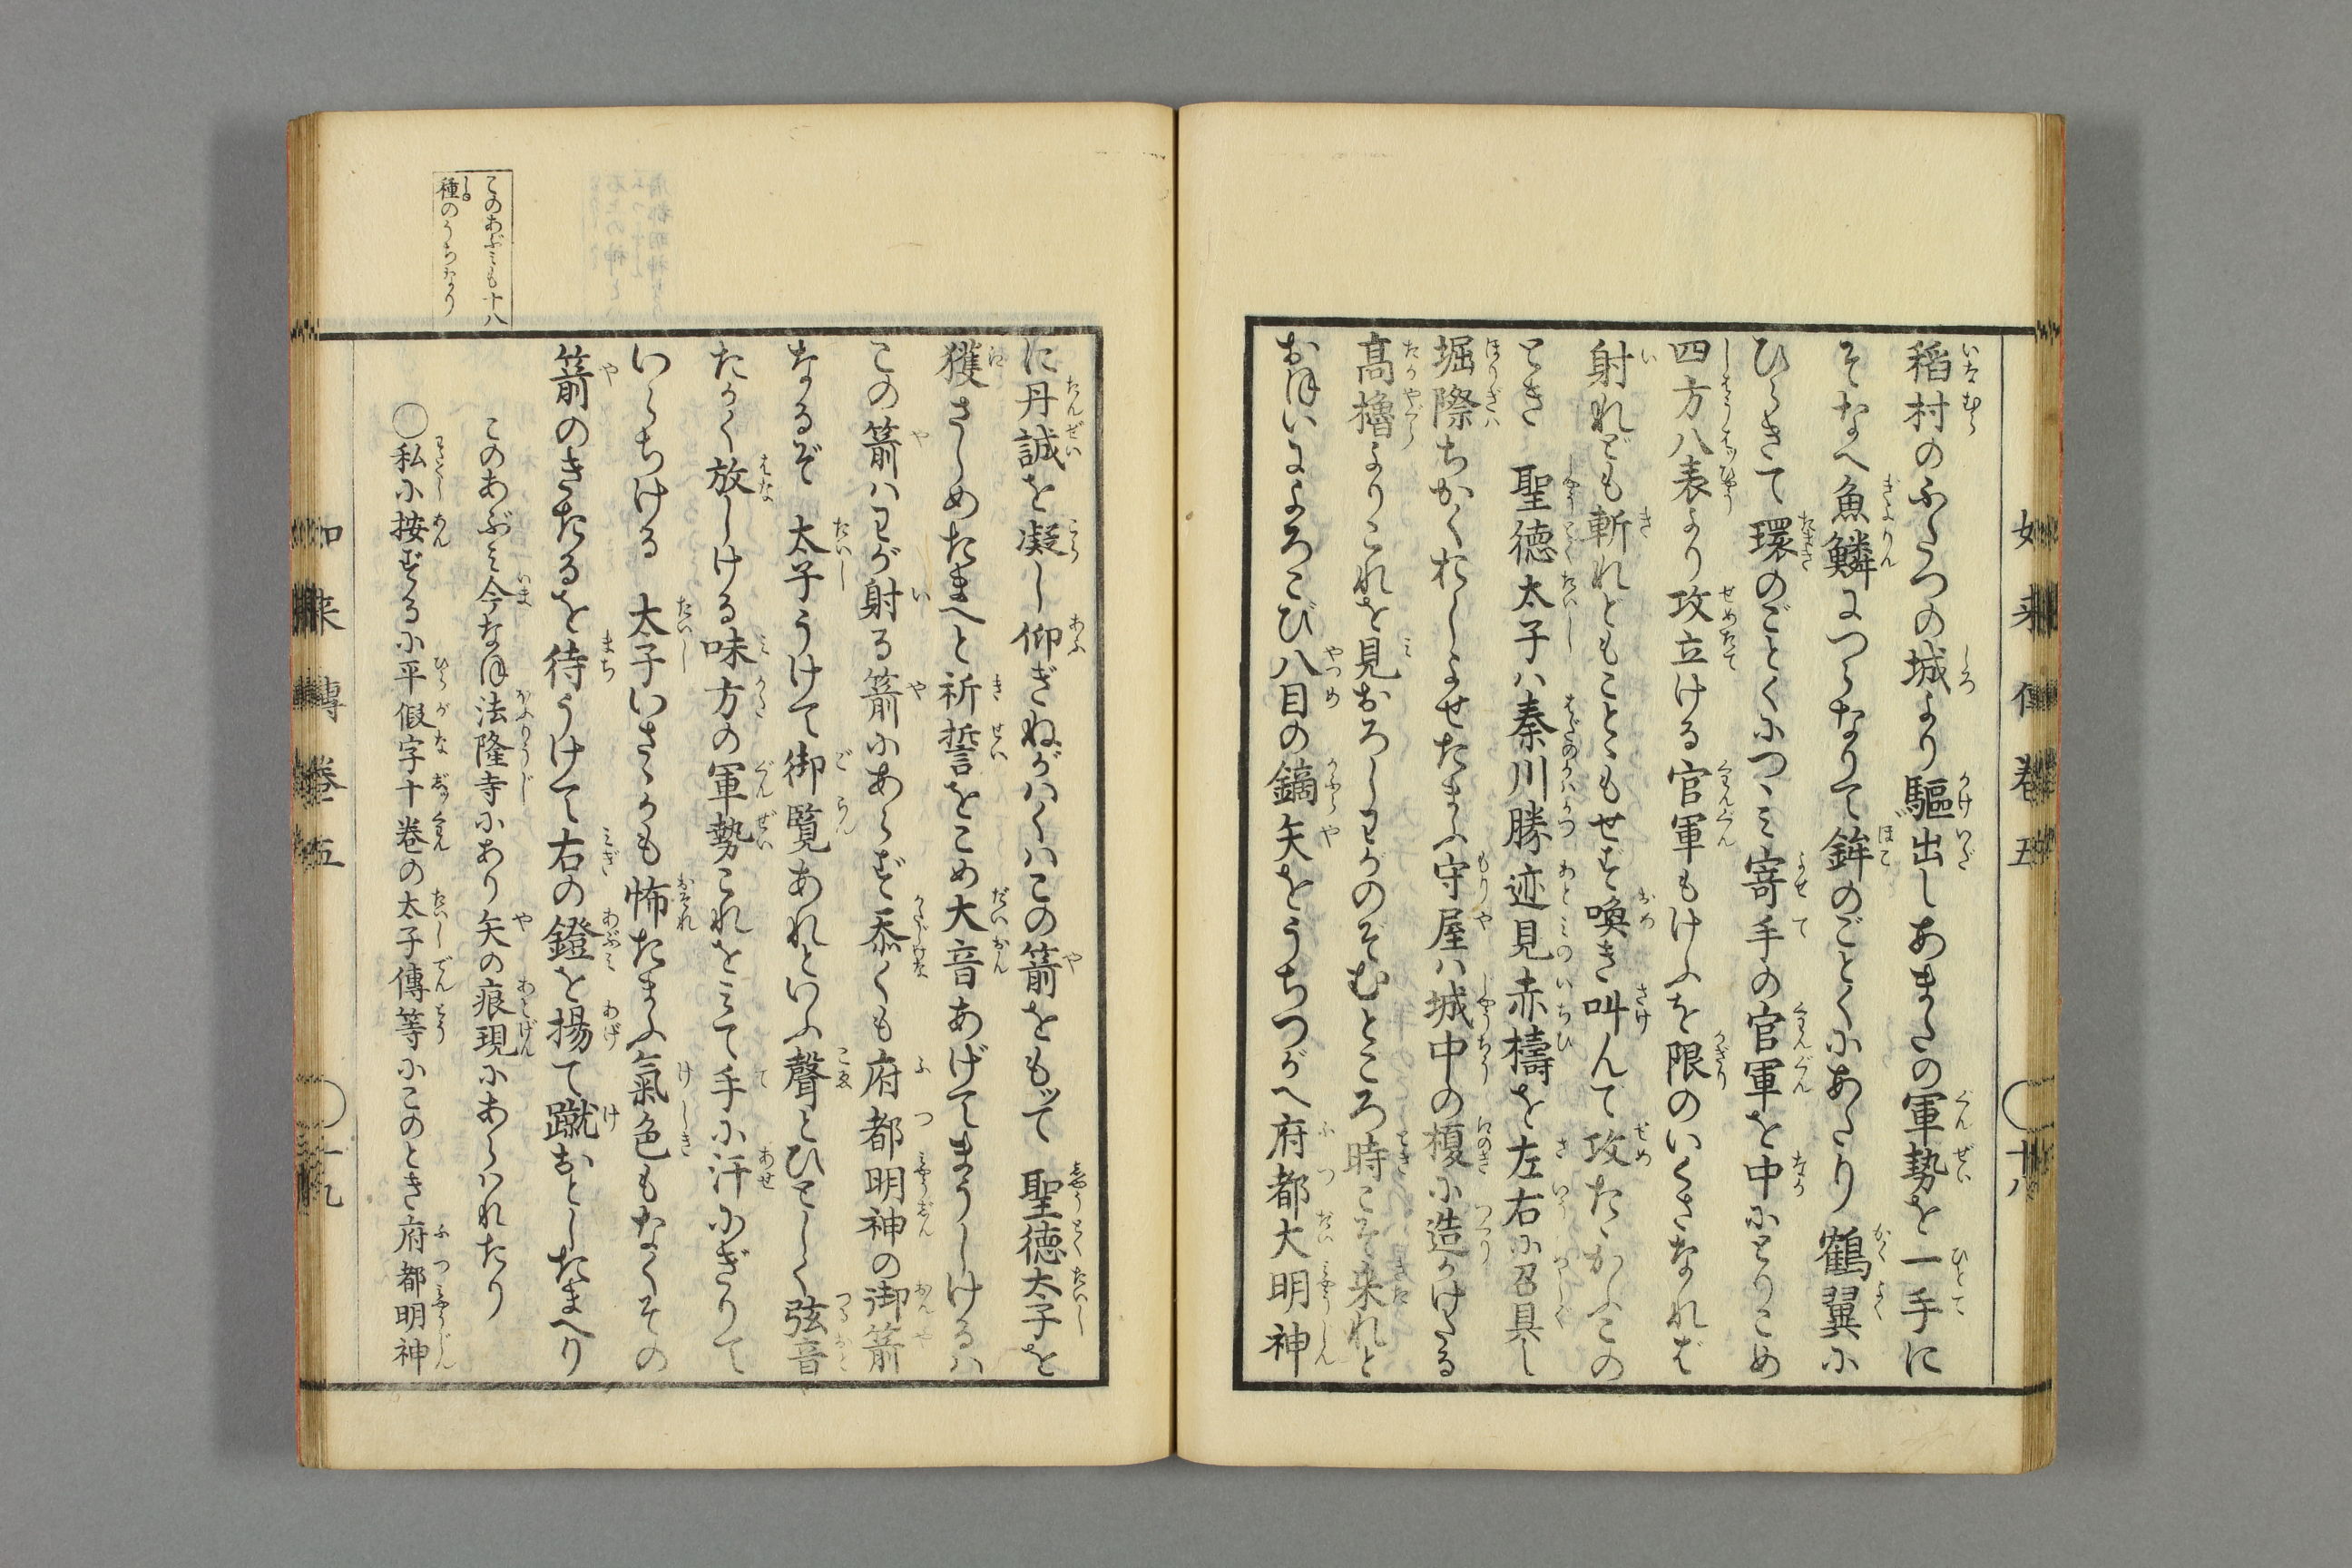 稻村のふたつの城より驅出しあまたの軍勢を一手に
そなへ魚鱗につらなりて鉾のごとくにあたり鶴翼に
ひらきて環のごとくにつゝみ寄手の官軍を中にとりこめ
四方八表より攻立ける官軍もけふを限のいくさなれば
射れども斬れどもことゝもせず喚き叫んて攻たゝかふこの
とき 聖徳太子ハ秦川勝迹見赤檮を左右に召具し
堀際ちかくおしよせたまふ守屋ハ城中の榎に造りかけたる
髙櫓よりこれを見おろしわがのぞむところ時こそ来れと
おほいによろこび八目の鏑矢をうちつがへ府都大明神
如来傳巻五 〇十八
に丹誠を凝し仰ぎねがハくハこの箭をもつて 聖徳太子を
獲さしめたまへと祈誓をこめ大音あげてまうしけるハ
この箭ハわが射る箭にあらず忝くも府都明神の御箭
なるぞ 太子うけて御覧あれといふ聲とひとしく弦音
たかく放しける味方の軍勢これをみて手に汗にぎりて
いらちける 太子いさゝかも怖たまふ氣色もなくその
箭のきたるを待うけて右の鐙を揚て蹴おとしたまへり
このあぶみも十八
種のうちなり
このあぶミ今なほ法隆寺にあり矢の痕現にあらハれたり
〇私に按ずるに平假字十巻の太子傳等にこのとき府都明神
如来傳巻五 〇十九